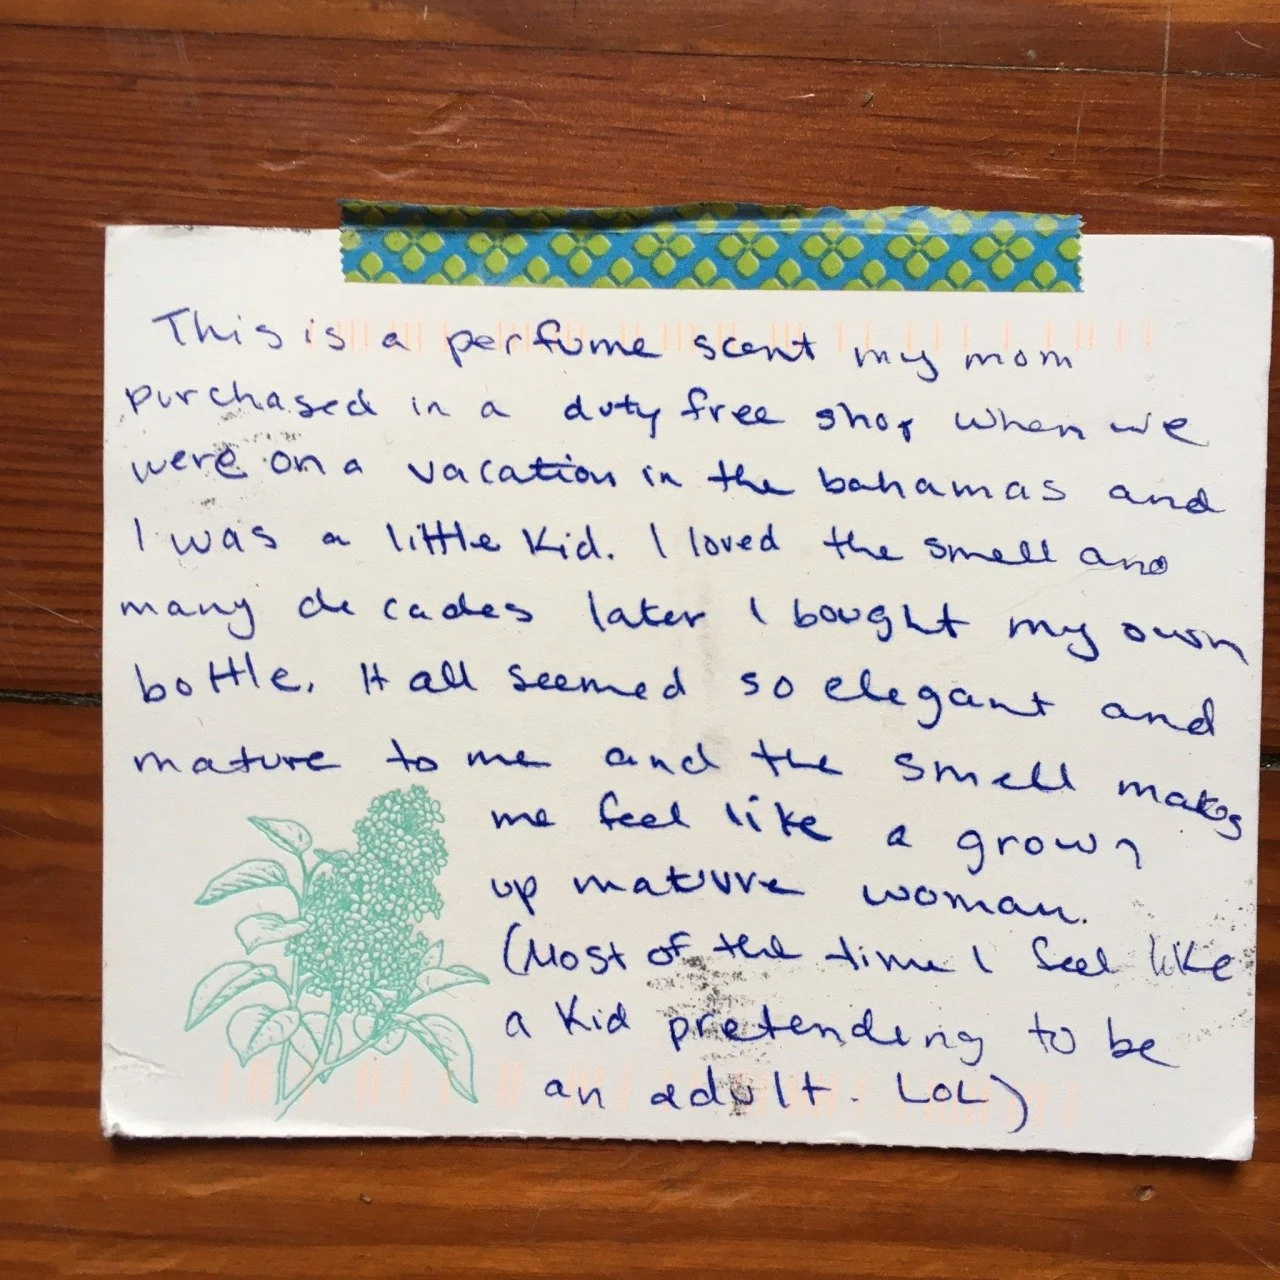 This is a perfume scent my mom
purchased in a duty free shop when we
were on a vacation in the bahamas and
I was a little kid. I loved the smell and
many decades later I bought my own
bottle. It all seemed so elegant and
mature to me and the smell makes
me feel like a grown
up mature woman.
(Most of the time I feel like
a kid pretending to be
an adult. LOL)